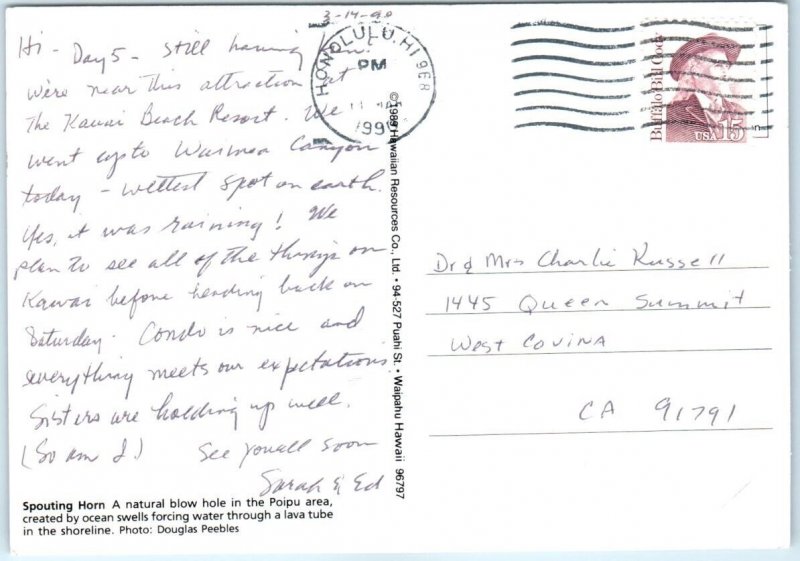 3-14-90
Hi - Day 5 - Still having fun.
We're near this attraction at
The Kawai Beach Resort. We
went up to Waimea Canyon
today - wettest spot on earth.
Yes, it was raining! We
plan to see all of the things on
Kawai before heading back on
Saturday. Condo is nice and
everything meets our expectations.
Sisters are holding up well.
(So am I.) See you all soon
Sarah & Ed
Spouting Horn A natural blow hole in the Poipu area,
created by ocean swells forcing water through a lava tube
in the shoreline. Photo: Douglas Peebles
HONOLULU, HI 968
PM
©1989 Hawaiian Resources Co., Ltd. • 94-527 Puahi St. • Waipahu Hawaii 96797
Buffalo Bill Cody
USA 15
Dr & Mrs Charlie Russell
1445 Queen Summit
West Covina
CA 91791